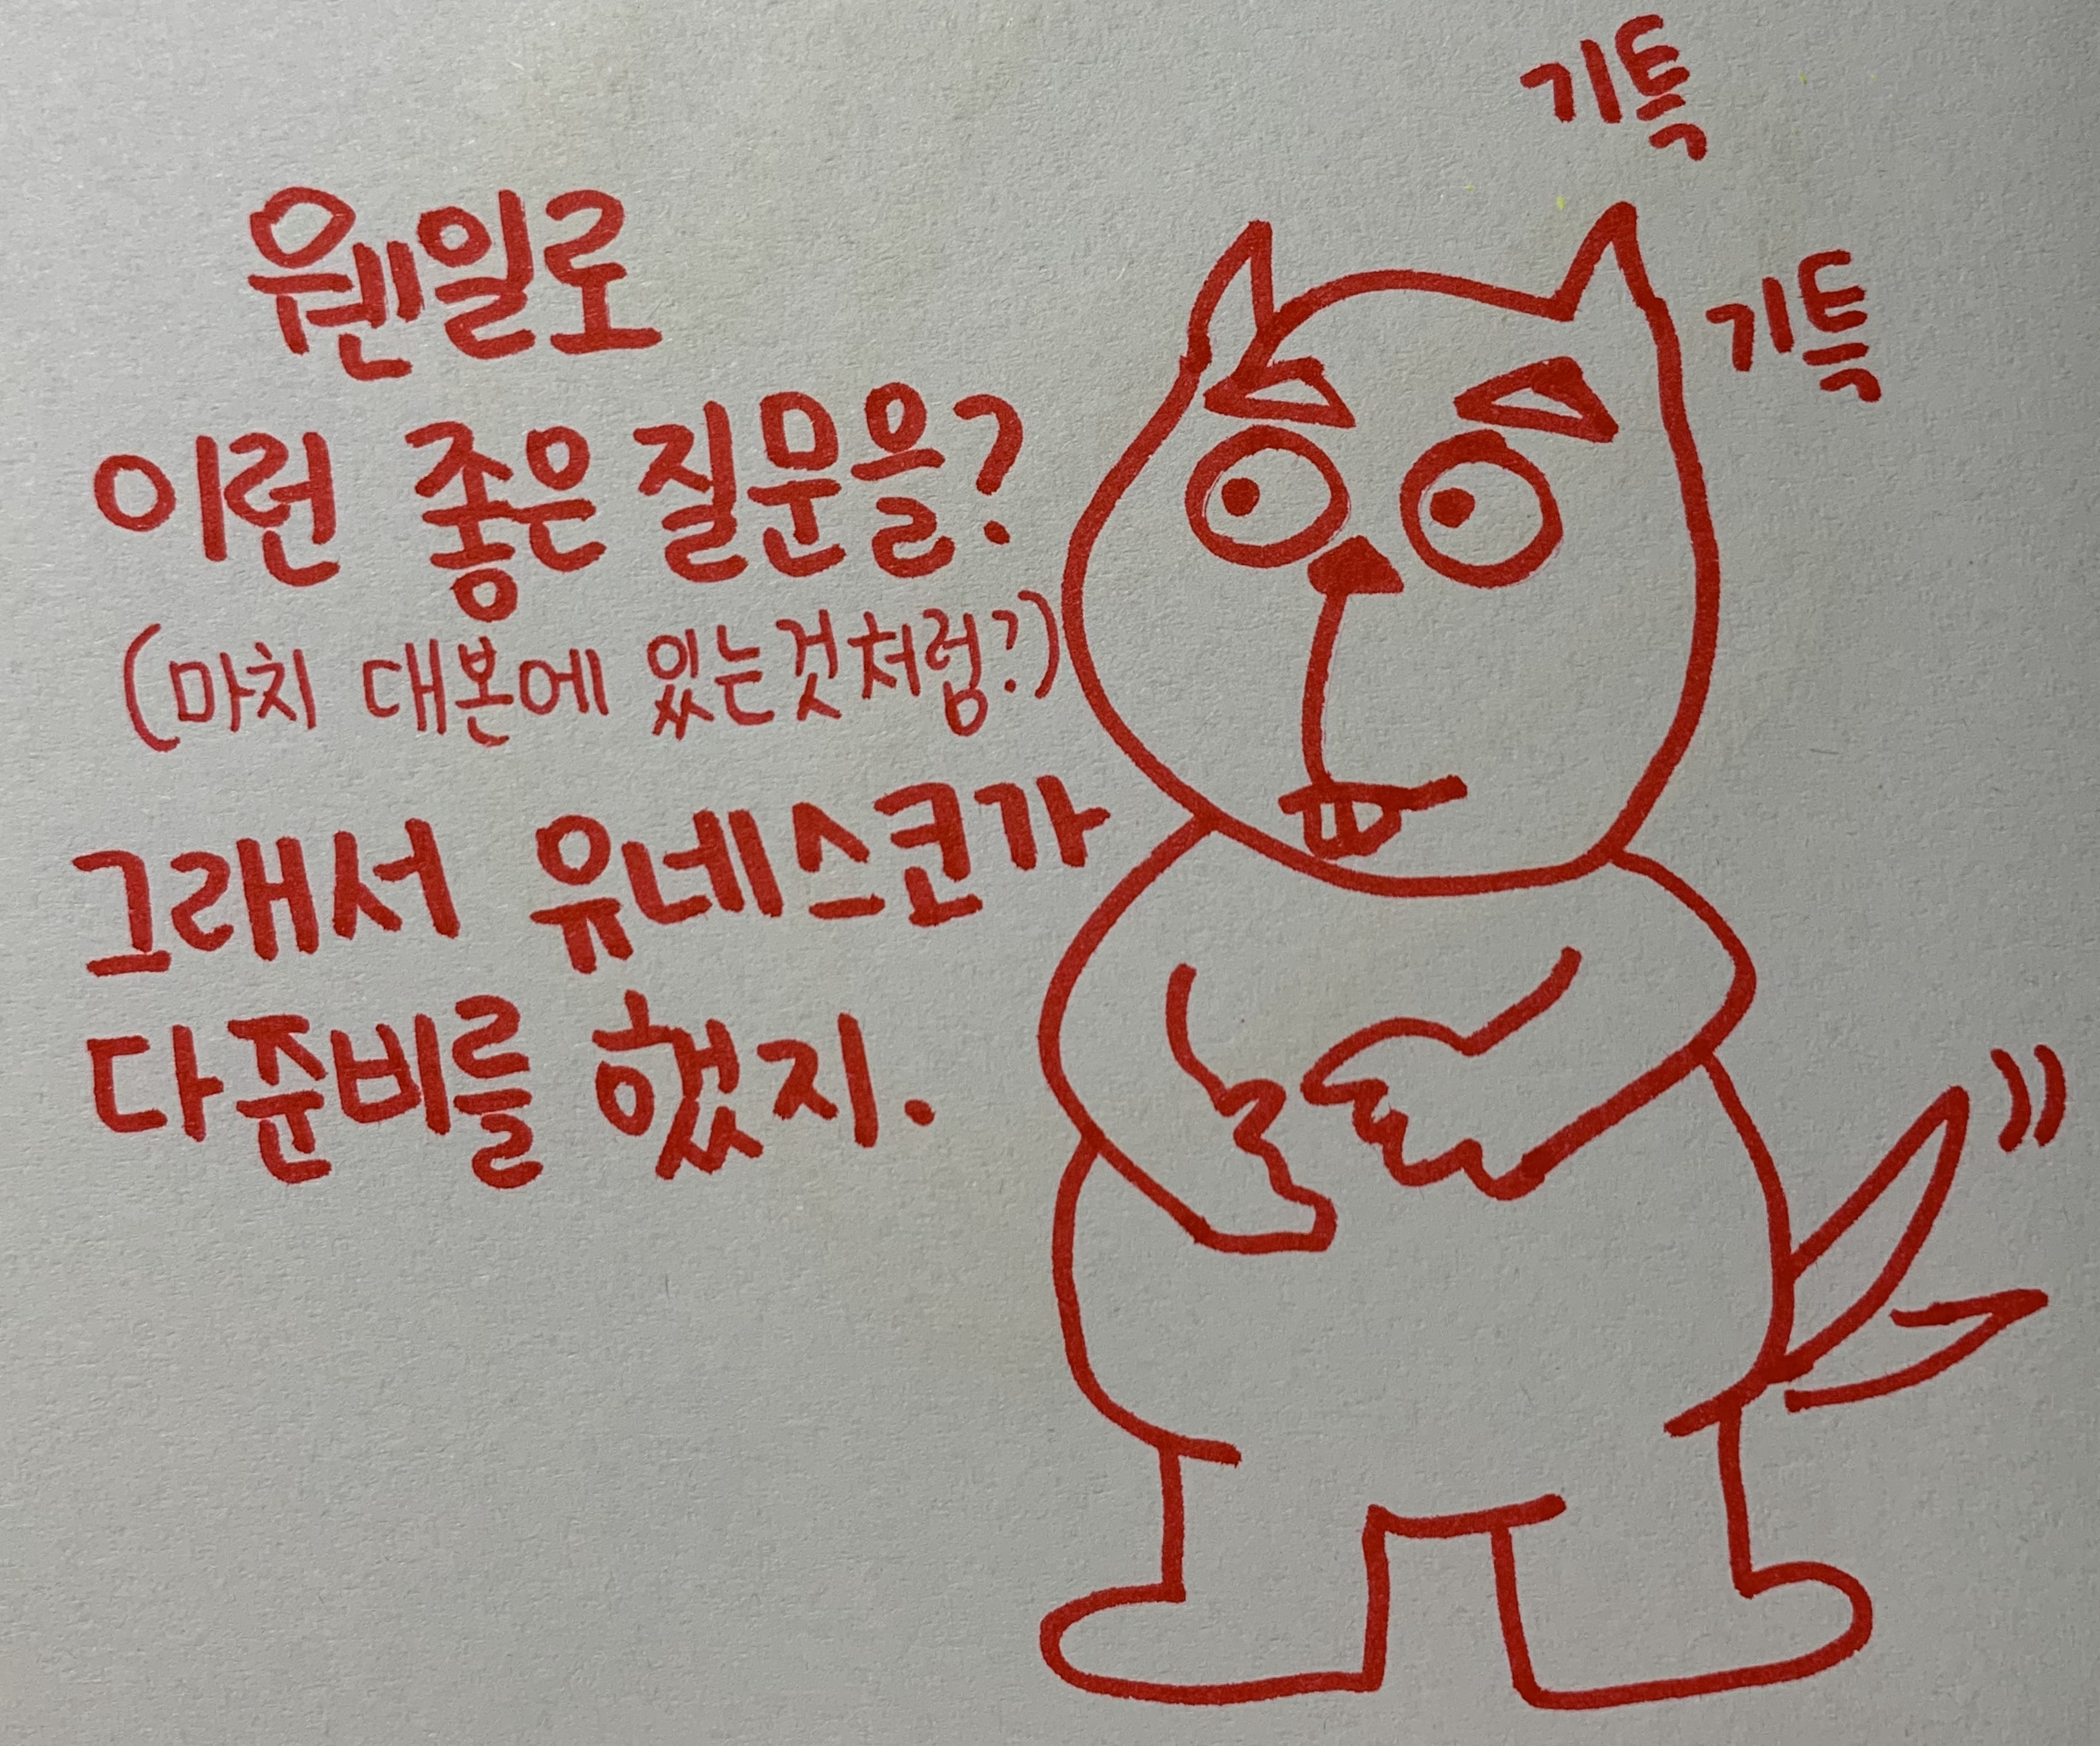 기특
기특
웬일로
이런 좋은 질문을?
(마치 대본에 있는것처럼?)
그래서 유네스코가
다 준비를 했지.